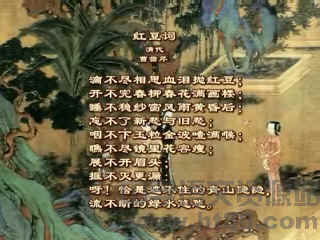 红豆词
清代
曹雪芹
滴不尽相思血泪抛红豆；
开不完春柳春花满画楼；
睡不稳纱窗风雨黄昏后；
忘不了新愁与旧愁；
咽不下玉粒金波噎满喉；
瞧不尽镜里花容瘦；
展不开眉头；
捱不灭更漏
呀！恰是遮不住的青山隐隐
流不断的绿水悠悠。